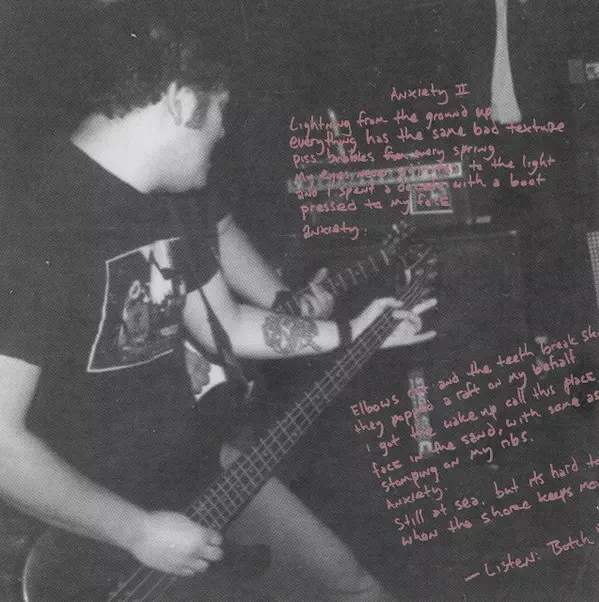 Anxiety II
Lightning from the ground up
everything has the same bad texture
piss bubbles from every spring
My eyes never to the light
and I spent a decade with a boot
pressed to my face
anxiety.
Elbows out and the teeth break
they popped a raft on my behalf
i got the wake up call this place
face in the sand, with some
stomping on my ribs.
Anxiety.
Still at sea. but its hard to
when the shore keeps
— Listen: Botch